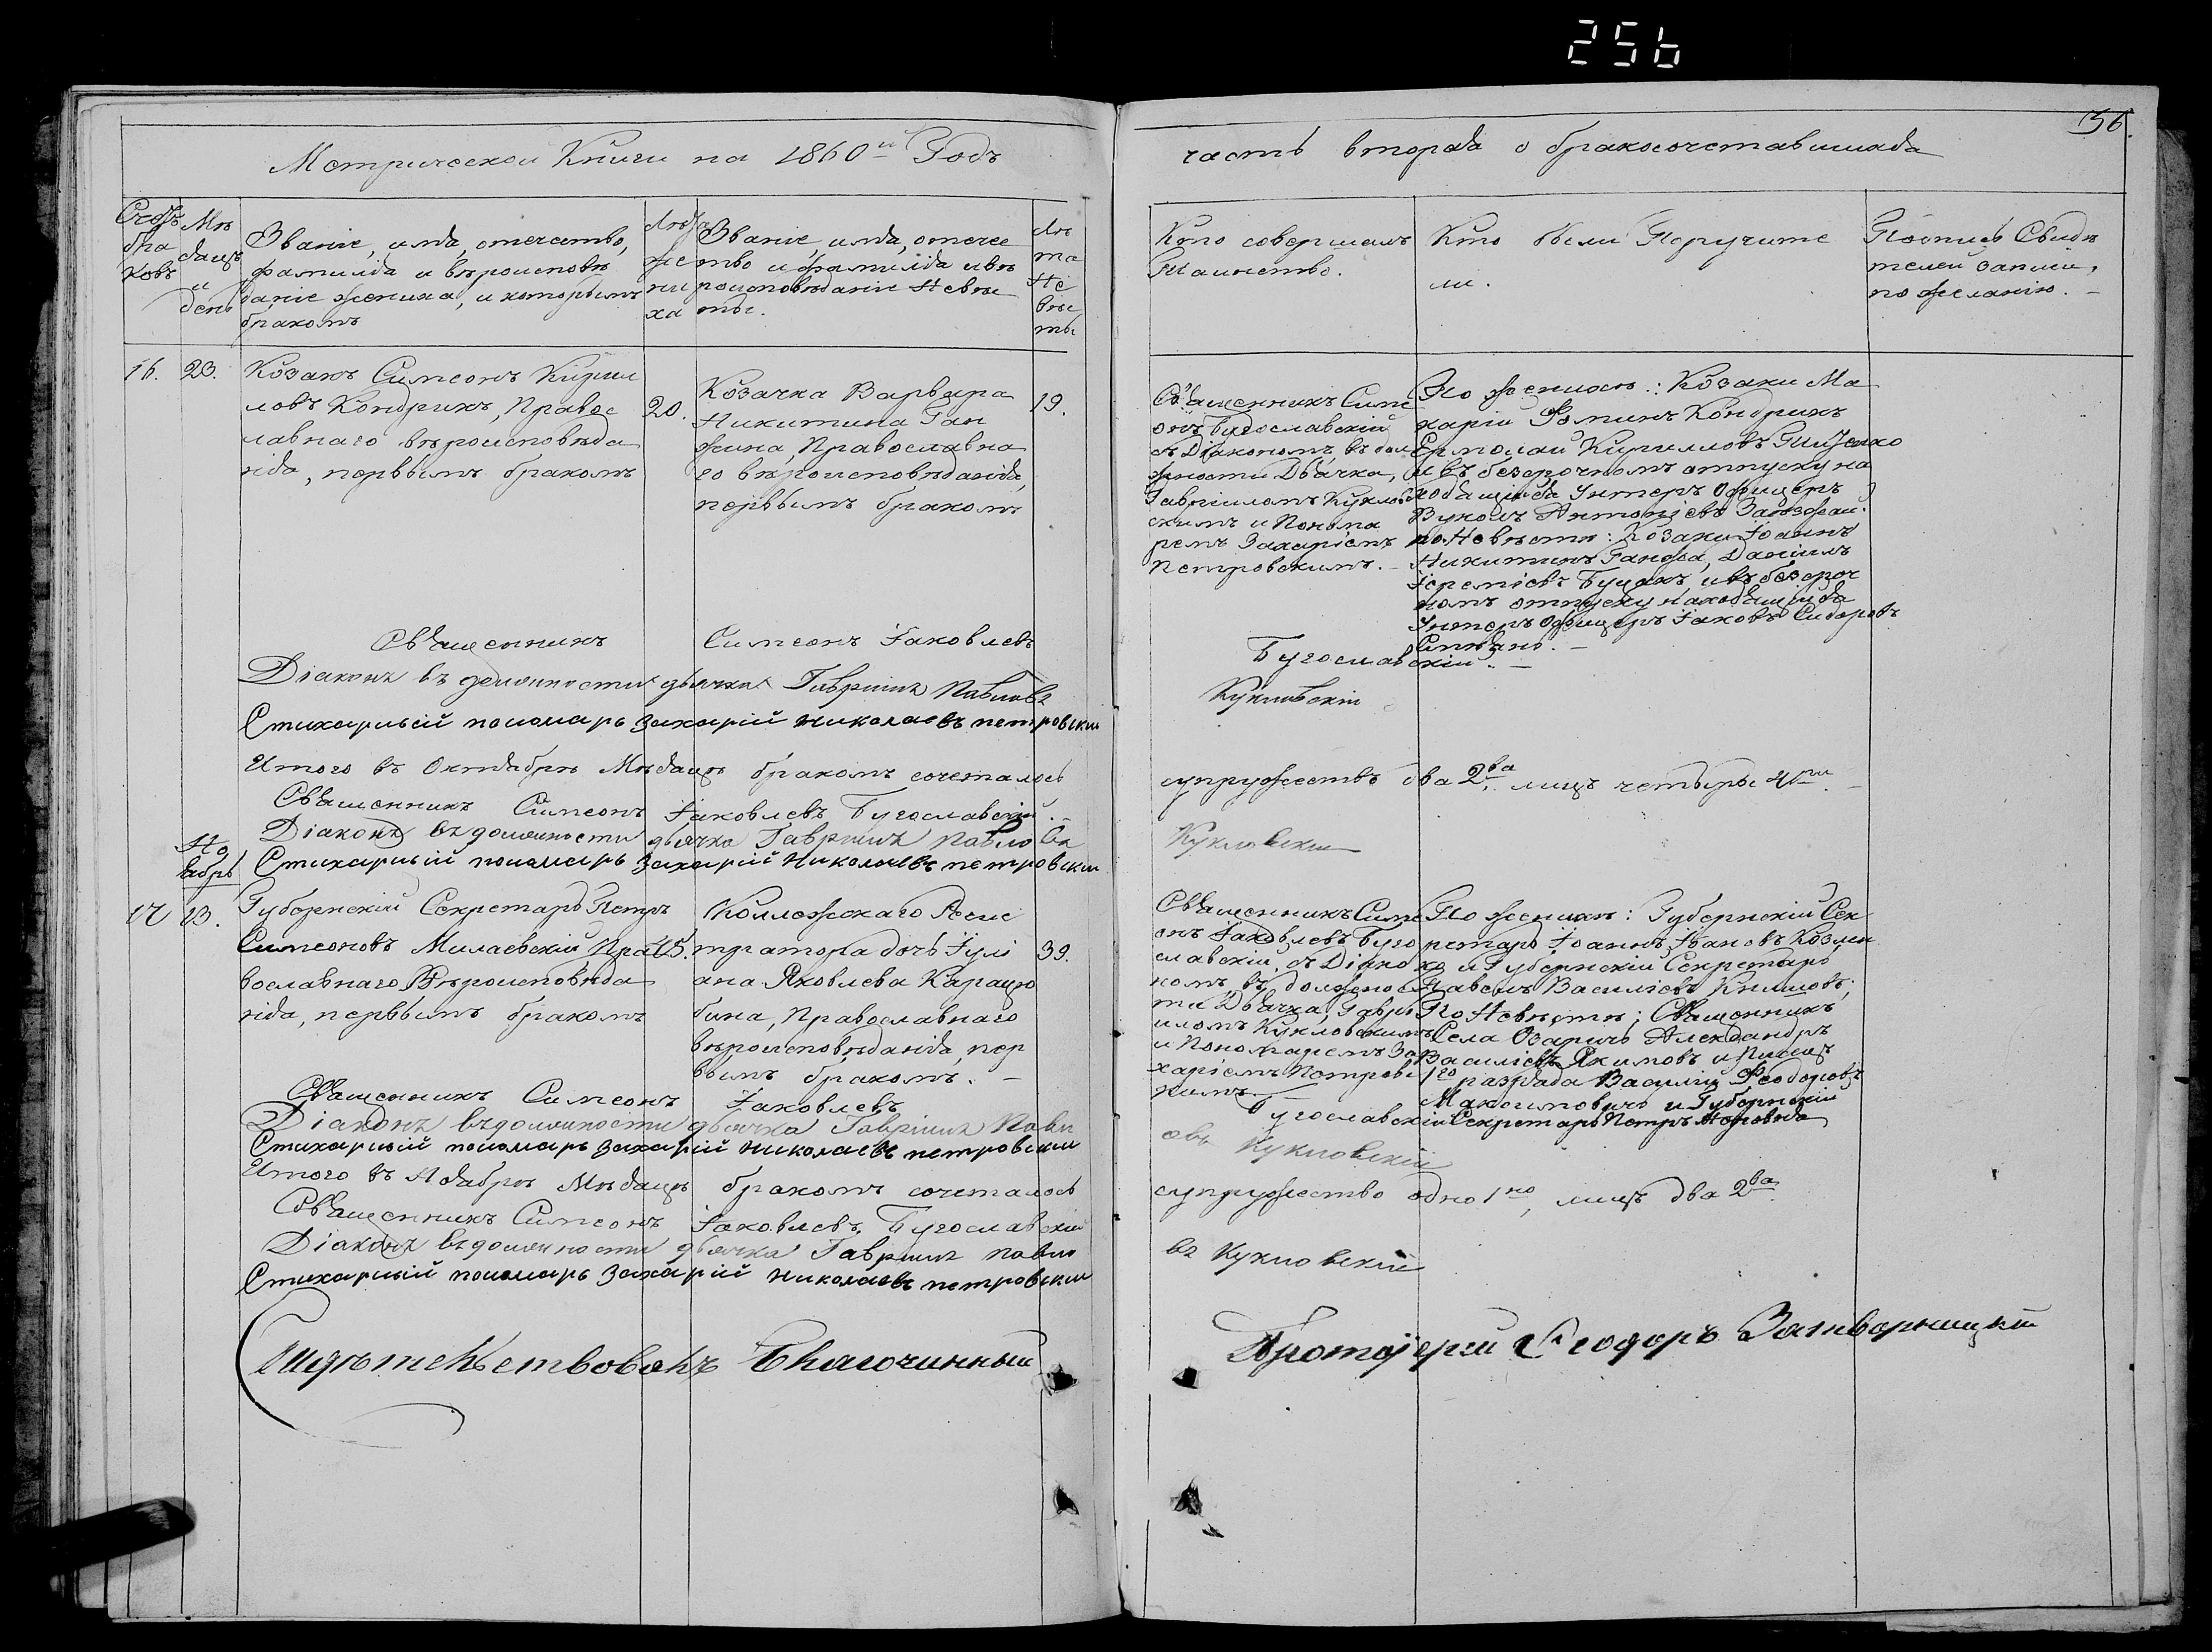 256
36.
Метрической Книги на 1860й Годъ
часть вторая о бракосочетавшихся
Счетъ
бра
ковъ
Мѣ
сяцъ
и
день
Званіе, имя, отечество,
фамилія и вѣроисповѣ
даніе жениха, и которымъ
бракомъ
Лѣта
же
ни
ха
Званіе, имя, отече
тво и фамилія и вѣ
роисповѣданіе Невѣс
ты.
Лѣ
та
Не
вѣс
ты
Кто совершалъ
Таинство.
Кто были Поручите
ли.
Подпись Свидѣ
телей записи,
по желанію.
16.
23.
Козакъ Симеонъ Кирил
ловъ Кондрикъ, Правос
лавнаго вѣроисповѣда
нія, первымъ бракомъ
20.
Козачка Варвара
Никитина Ган
жина, Православна
го вѣроисповѣданія,
первымъ бракомъ
19.
Священникъ Симе
онъ Бугославскій
съ Діакономъ въ дол
жности Дьячка,
Гавріиломъ Куклов
скимъ и Понома
ремъ Захаріемъ
Петровскимъ.
По женихѣ: Козаки Ма
карій Фоминъ Кондрикъ
Ермолай Кирилловъ
и въ безсрочномъ отпуску на
ходящійся Унтеръ Офицеръ
Вуколъ Антоніевъ
по Невѣстѣ: Козаки Іоаннъ
Никитинъ Ганжа, Даніилъ
Іереміевъ Буцакъ и въ безсроч
номъ отпуску находящійся
Унтеръ Офицеръ Іаковъ Сидоровъ
Священникъ Симеонъ Іаковлевъ Бугославскій.
Діаконъ въ должности дьячка Гавріилъ Павловъ Кукловскій
Стихарный пономарь Захарій Николаевъ Петровскій
Итого въ Октябрѣ Мѣсяцѣ бракомъ сочеталось супружествъ два 2ва, лицъ четыре 4ри.
Священникъ Симеонъ Іаковлевъ Бугославскій.
Діаконъ въ должности дьячка Гавріилъ Павловъ Кукловскій
Стихарный пономарь Захарій Николаевъ Петровскій
Но
ябрь
17
13.
Губернскій Секретарь Петръ
Симеоновъ Милаевскій Пра
вославнаго Вѣроисповѣда
нія, первымъ бракомъ
45.
Коллежскаго Регис
тратора дочь Іулі
ана Яковлева Карацю
бина, Православнаго
вѣроисповѣданія, пер
вымъ бракомъ.
39.
Священникъ Симе
онъ Іаковлевъ Буго
славскій, съ Діако
номъ въ должнос
ти Дьячка, Гаврі
иломъ Кукловскимъ
и Пономаремъ За
харіемъ Петровс
кимъ
По женихѣ: Губернскій Сек
ретарь Іоаннъ Ивановъ Козлен
ко и Губернскій Секретарь
Павелъ Василіевъ Климовъ;
По Невѣстѣ: Священникъ
Села Озаричъ Александръ
Василіевъ Якимовъ и Писецъ
1го разряда Василій Феодоровъ
Максимовичъ и Губернскій
Секретарь Петръ
Священникъ Симеонъ Іаковлевъ Бугославскій
Діаконъ въ должности дьячка Гавріилъ Павловъ Кукловскій
Стихарный пономарь Захарій Николаевъ Петровскій
Итого въ Ноябрѣ Мѣсяцѣ бракомъ сочеталось супружество одно 1но, лицъ два 2ва.
Священникъ Симеонъ Іаковлевъ Бугославскій
Діаконъ въ должности дьячка Гавріилъ Павловъ Кукловскій
Стихарный пономарь Захарій Николаевъ Петровскій
Свидѣтельствовалъ Благочинный Протоіерей Феодоръ Затворницкій